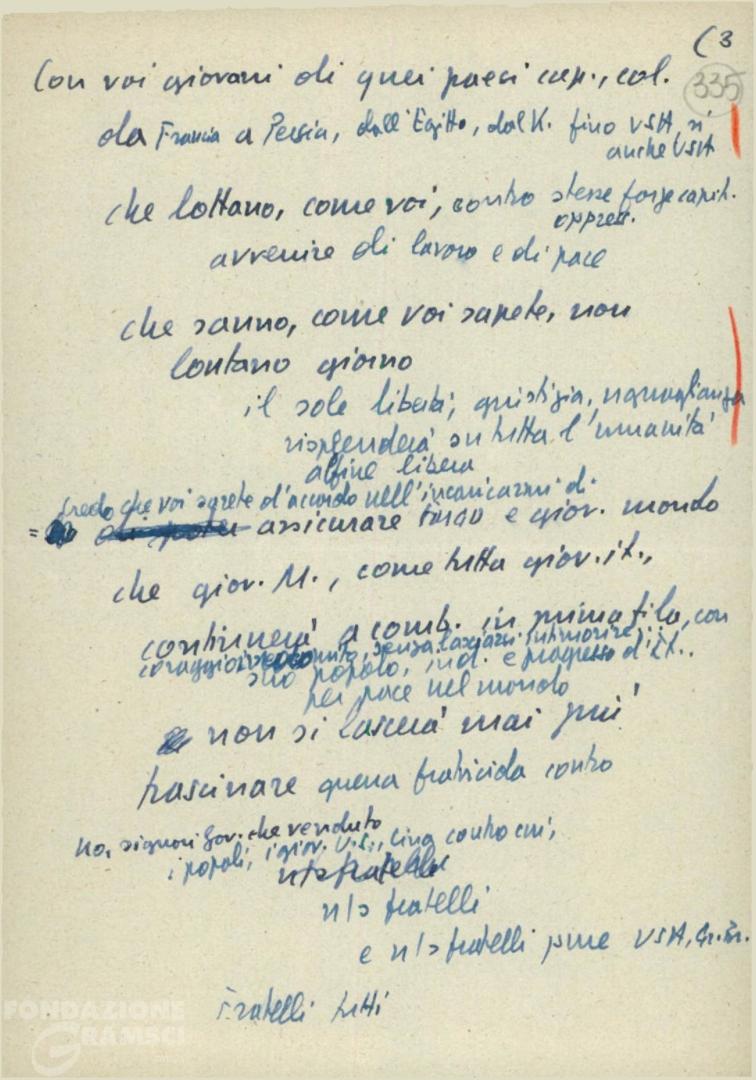 (3
335
Con voi giovani di quei paesi cap., col.
da Francia a Persia, dall'Egitto, dal V. fino USA, sì
anche USA
che lottano, come voi, contro stesse forze capit.
oppress.
avvenire di lavoro e di pace
che sanno, come voi sapete, non
lontano giorno
il sole libertà, giustizia, uguaglianza
risplenderà su tutta l'umanità
alfine libera
Credo che voi sarete d'accordo nell'incaricarmi di
= assicurare e giov. mondo
che giov. M., come tutta giov. it.,
continuerà a comb. in prima fila, con
coraggio senza lasciarsi intimorire
suo popolo, ind. e progresso d'It..
per pace nel mondo
non si lascerà mai più
trascinare guerra fratricida contro
No, signori Gov. che venduto
i popoli, i giov. U.S., Cina contro cui,
n/s fratelli
n/s fratelli
e n/s fratelli pure USA, Gr. Br.
Fratelli tutti
FONDAZIONE
GRAMSCI